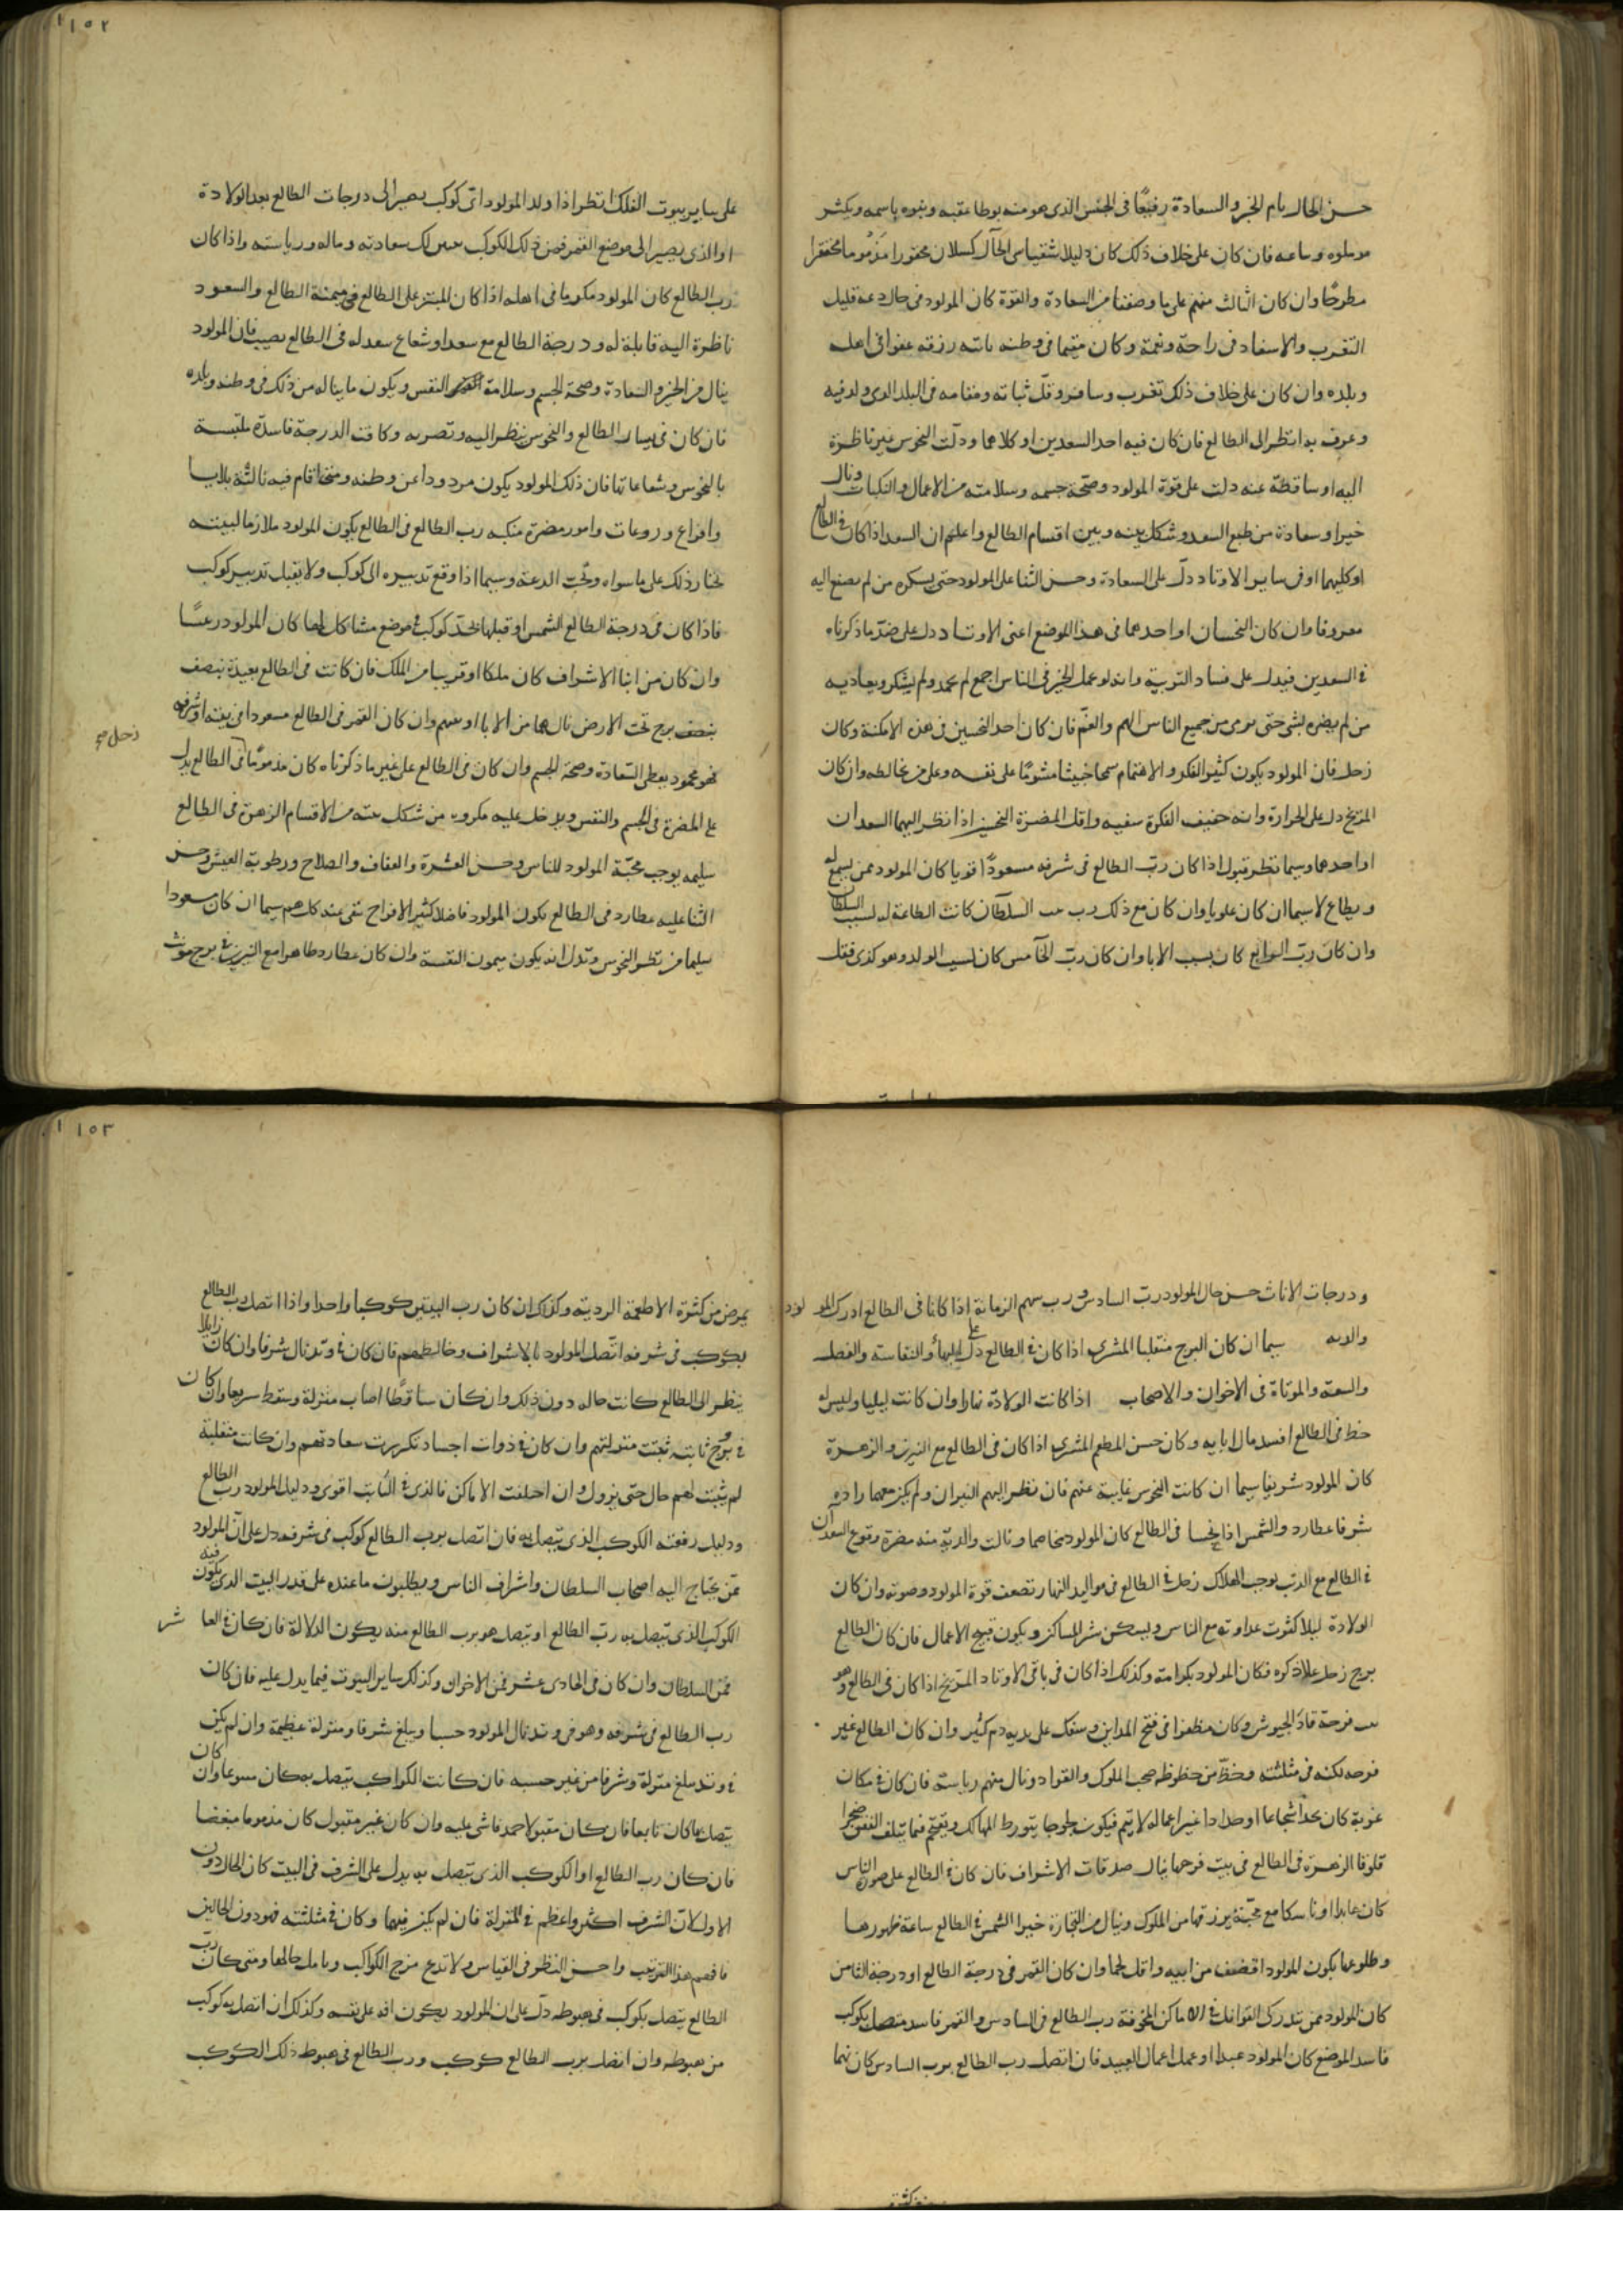 حسن الحال تام الخير والسعادة رفيعًا في الجنس الذي هو منه يوطا عقبه وينوه باسمه ويكثر
وساعه فان كان على خلاف ذلك كان دليلا شقيا سي الحال كسلان محقورا مذموما محتقرا
مطرحًا وان كان الثالث منهم على ما وصفنا من السعادة والقوة كان المولود في حال دعة قليل
التغرب والاسفار في راحة ونعمة وكان مقيما في وطنه ياتيه رزقه عفوا في اهله
وبلده وان كان على خلاف ذلك تغرب وسافر وقلّ ثباته ومقامه في البلد الذي ولد فيه
وعرف به انظر الى الطالع فان كان فيه احد السعدين او كلاهما ودلت النحوس غير ناظرة
اليه او ساقطة عنه دلت على قوة المولود وصحّة جسمه وسلامته من الاعمال والنكبات ونال
خيرا وسعادة من طبع السعد وشكل بينه وبين اقسام الطالع واعلم ان السعد اذا كان في الطالع
او كليهما او في ساير الاوتاد دلّ على السعادة وحسن الثنا على المولود حتى يشكره من لم يصنع اليه
معروفا وان كان النحسان او احدهما في هذا الموضع اعني الاوتاد دل على ضدّ ما ذكرناه
في السعدين فيدل على فساد التربية وانه لو عمل الخير في الناس اجمع لم يحمد ولم يشكر ويعاديه
من لم يضره بشي حتى يرمى من جميع الناس الهم والغمّ فان كان احد النحسين في هذه الامكنة وكان
زحل فان المولود يكون كثير الفكر والاهتمام سمحا خبيثا مشومًا على نفسه وعلى من يخالطه وان كان
المريخ دل على الحرارة وانه خفيف الفكرة سفيه واقل المضرة النحسين اذا نظر اليهما السعدان
او احدهما وسيما نظر قبول اذا كان ربّ الطالع في شرفه مسعودًا قويا كان المولود ممن يسمع له
ويطاع لاسيما ان كان علويا وان كان مع ذلك رب بيت السلطان كانت الطاعة له لسبب السلطان
وان كان ربّ الرابع كان بسبب الابا وان كان ربّ الخامس كان لسبب الولد وهو كذى فقل
١٥٢
على ساير بيوت الفلك انظر اذا ولد المولود اى كوكب يصير الى درجات الطالع بعد الولادة
او الذي يصير الى موضع القمر فمن ذلك الكوكب يتبين لك سعادته وماله ورياسته واذا كان
رب الطالع كان المولود مكرما في اهله اذا كان المبتز على الطالع في ميمنة الطالع والسعود
ناظرة اليه قابلة له ودرجة الطالع مع سعد او شعاع سعد له في الطالع نصيب فان المولود
ينال من الخير والسعادة وصحة الجسم وسلامة النفس ويكون ما يناله من ذلك في وطنه وبلده
فان كان في يسار الطالع والنحوس ينظر اليه وتضربه وكانت الدرجة فاسدة ملتبسة
بالنحوس وشعاعاتها فان ذلك المولود يكون مردودا عن وطنه ومتى اقام فيه نالته بلايا
وافزاع وروعات وامور مضرة منكبه رب الطالع في الطالع يكون المولود ملازما لبيته
يختار ذلك على ما سواه ويحّب الدعة وسيما اذا وقع تدبيره الى كوكب ولا يقبل تدبير كوكب
فاذا كان في درجة الطالع الشمس او قبلها بحد كوكب في موضع مشاكل لها كان المولود رئيسًا
وان كان من ابنا الاشراف كان ملكا او قريبا من الملك فان كانت في الطالع بعيدة بنصف
بنصف برج تحت الارض نال هما من الابا او بينهم وان كان القمر في الطالع مسعودا في بيته او شرفه
زحل مح
نحو محمود يعطى السّعادة وصحة الجسم وان كان في الطالع على غير ما ذكرناه كان مذمومًا في الطالع يدل
على المضرة في الجسم والنفس ويدخل عليه مكروه من شكل بيته من الاقسام الزهرة في الطالع
سليمه يوجب محبّة المولود للناس وحسن العشرة والعفاف والصلاح ورطوبة العيش وحسن
الثنا عليه عطارد في الطالع يكون المولود فاضلا كثير الافراح نقى عند كل هم سيما ان كان مسعودا
سليما من نظر النحوس وتدل انه يكون ميمون النقسة وان كان عطارد ظاهرا مع النيرين في برج مونث
ودرجات الاناث حسن حال المولود ربّ السادس ورب سهم الزمانة اذا كانا في الطالع ادرك المولود
والديه سيما ان كان البرج منقلبا المشترى اذا كان في الطالع دل على البهاء والنفاسة والفضل
والسعة والمواتاة في الاخوان والاصحاب اذا كانت الولادة نهارا وان كانت ليليا وليس له
حظ في الطالع افسد مال ابايه وكان حسن المطعم المشترى اذا كان في الطالع مع النيرين والزهرة
كان المولود شريفا سيما ان كانت النحوس غايبة عنهم فان نظر اليهم النيران ولم يكن معهما زاده
شرفا عطارد والشمس اذا نحسا في الطالع كان المولود مخاصما ونالت والديه منه مضرة وقوع السعدان
في الطالع مع الذنب يوجب الهلاك زحل في الطالع في مواليد النهار تضعف قوة المولود وصوته وان كان
الولادة ليلا كثرت عداوته مع الناس ويسكن شر المساكن ويكون قبيح الاعمال فان كان الطالع
برج زحل علا ذكره فكان المولود بكرامة وكذلك اذا كان في باقي الاوتاد المريخ اذا كان في الطالع وهو
بيت فرحة قاد الجيوش وكان مظفرا في فتح المداين وسفك على يديه دم كثير وان كان الطالع غير
فرحه لكنه في مثلثته وحظّ من حظوظه صحب الملوك والقواد ونال منهم رياسة فان كان في مكان
غربة كان نجدًا شجاعا او حدادا غير اعماله لا يتم فيكون لجوجا يتورط المهالك ويقتحم فيما يتلف النفس ضجرا
قلوقا الزهرة في الطالع في بيت فرحها ينال صدقات الاشراف فان كان في الطالع على صون الناس
كان عابدا او ناسكا مع محبّته يرزقها من الملوك وينال من التجارة خيرا الشمس في الطالع ساعة ظهورها
وطلوعها يكون المولود اقضف من ابيه واقل لحما وان كان القمر في درجة الطالع او درجة الثامن
كان المولود ممن تدركى القوافل في الاماكن المخوفة رب الطالع في السادس والقمر فاسد متصل بكوكب
فاسد الموضع كان المولود عبدا او عمل اعمال العبيد فان اتصل رب الطالع برب السادس كان نهما
١٥٣
يمرض من كثرة الاطعمة الردية وكذلك ان كان رب البيتين كوكبا واحدا واذا اتصل رب الطالع
بكوكب في شرفه اتّصل المولود بالاشراف وخالطهم فان كان في وتد نال شرفا وان كان زايلا
ينظر الى الطالع كانت حاله دون ذلك وان كان ساقطًا اصاب منزلة وسقط سريعا وان كان
في بروج ثابته ثبتت منزلتهم وان كان في ذوات اجساد تكررت سعادتهم وان كانت منقلبة
لم يثبت لهم حال حتى يزول وان اختلفت الاماكن فالذي في الثابت اقوى ودليل المولود رب الطالع
ودليل رفعته الكوكب الذي يتصل به فان اتصل برب الطالع كوكب في شرفه دل على انّ المولود
ممّن يحتاج اليه اصحاب السلطان واشراف الناس ويطلبون ما عنده على قدر البيت الذي يكون فيه
الكوكب الذي يتصل به ربّ الطالع او يتصل هو برب الطالع منه يكون الدلالة فان كان في العاشر
فمن السلطان وان كان في الحادى عشر فمن الاخوان وكذلك ساير البيوت فيما يدل عليه فان كان
رب الطالع في شرفه وهو في وتد نال المولود حسبا ويبلغ شرفا ومنزلة عظيمة وان لم يكن
في وتد بلغ منزلة وشرفا من غير حسبه فان كانت الكواكب يتصل به كان متبوعا وان كان
يتصل بها كان تابعا فان كان مقبولا حمد فاثنى عليه وان كان غير مقبول كان مذموما مبغضا
فان كان رب الطالع او الكوكب الذي يتصل به يدل على الشرف في البيت كان الحال دون
الاول لان الشرف اكثر واعظم في المنزلة فان لم يكن فيهما وكان في مثلثته فهو دون الحالين
فافهم هذا الترتيب واحسن النظر في القياس ولا تدع مزج الكواكب وتامل حالها ومتى كان ربّ
الطالع يتصل بكوكب في هبوطه دلّ على ان المولود يكون افه على نفسه وكذلك ان اتصل به كوكب
من هبوطه وان اتصل برب الطالع كوكب ورب الطالع في هبوط ذلك الكوكب